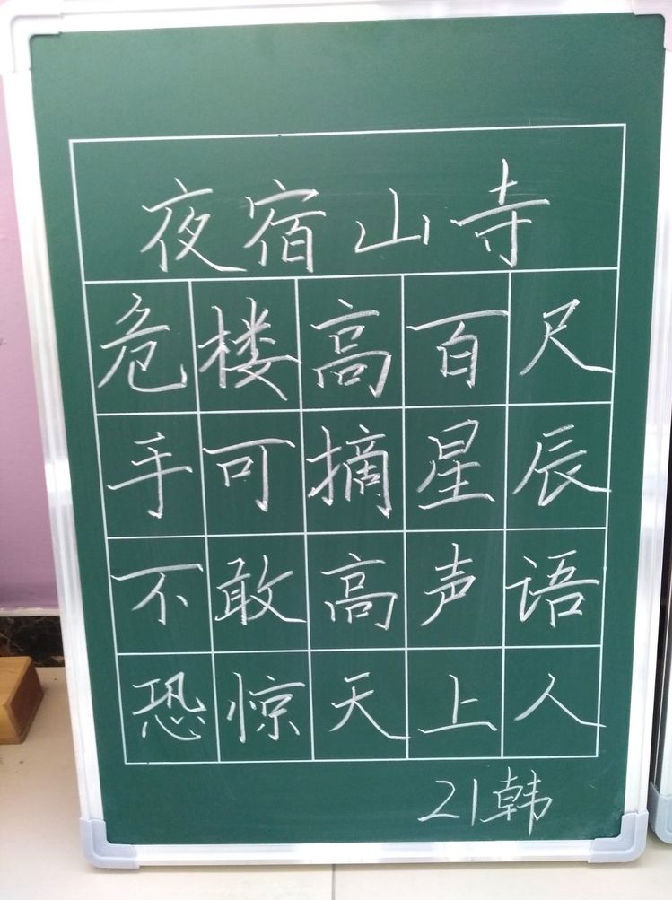 夜宿山寺
危楼高百尺
手可摘星辰
不敢高声语
恐惊天上人
21韩